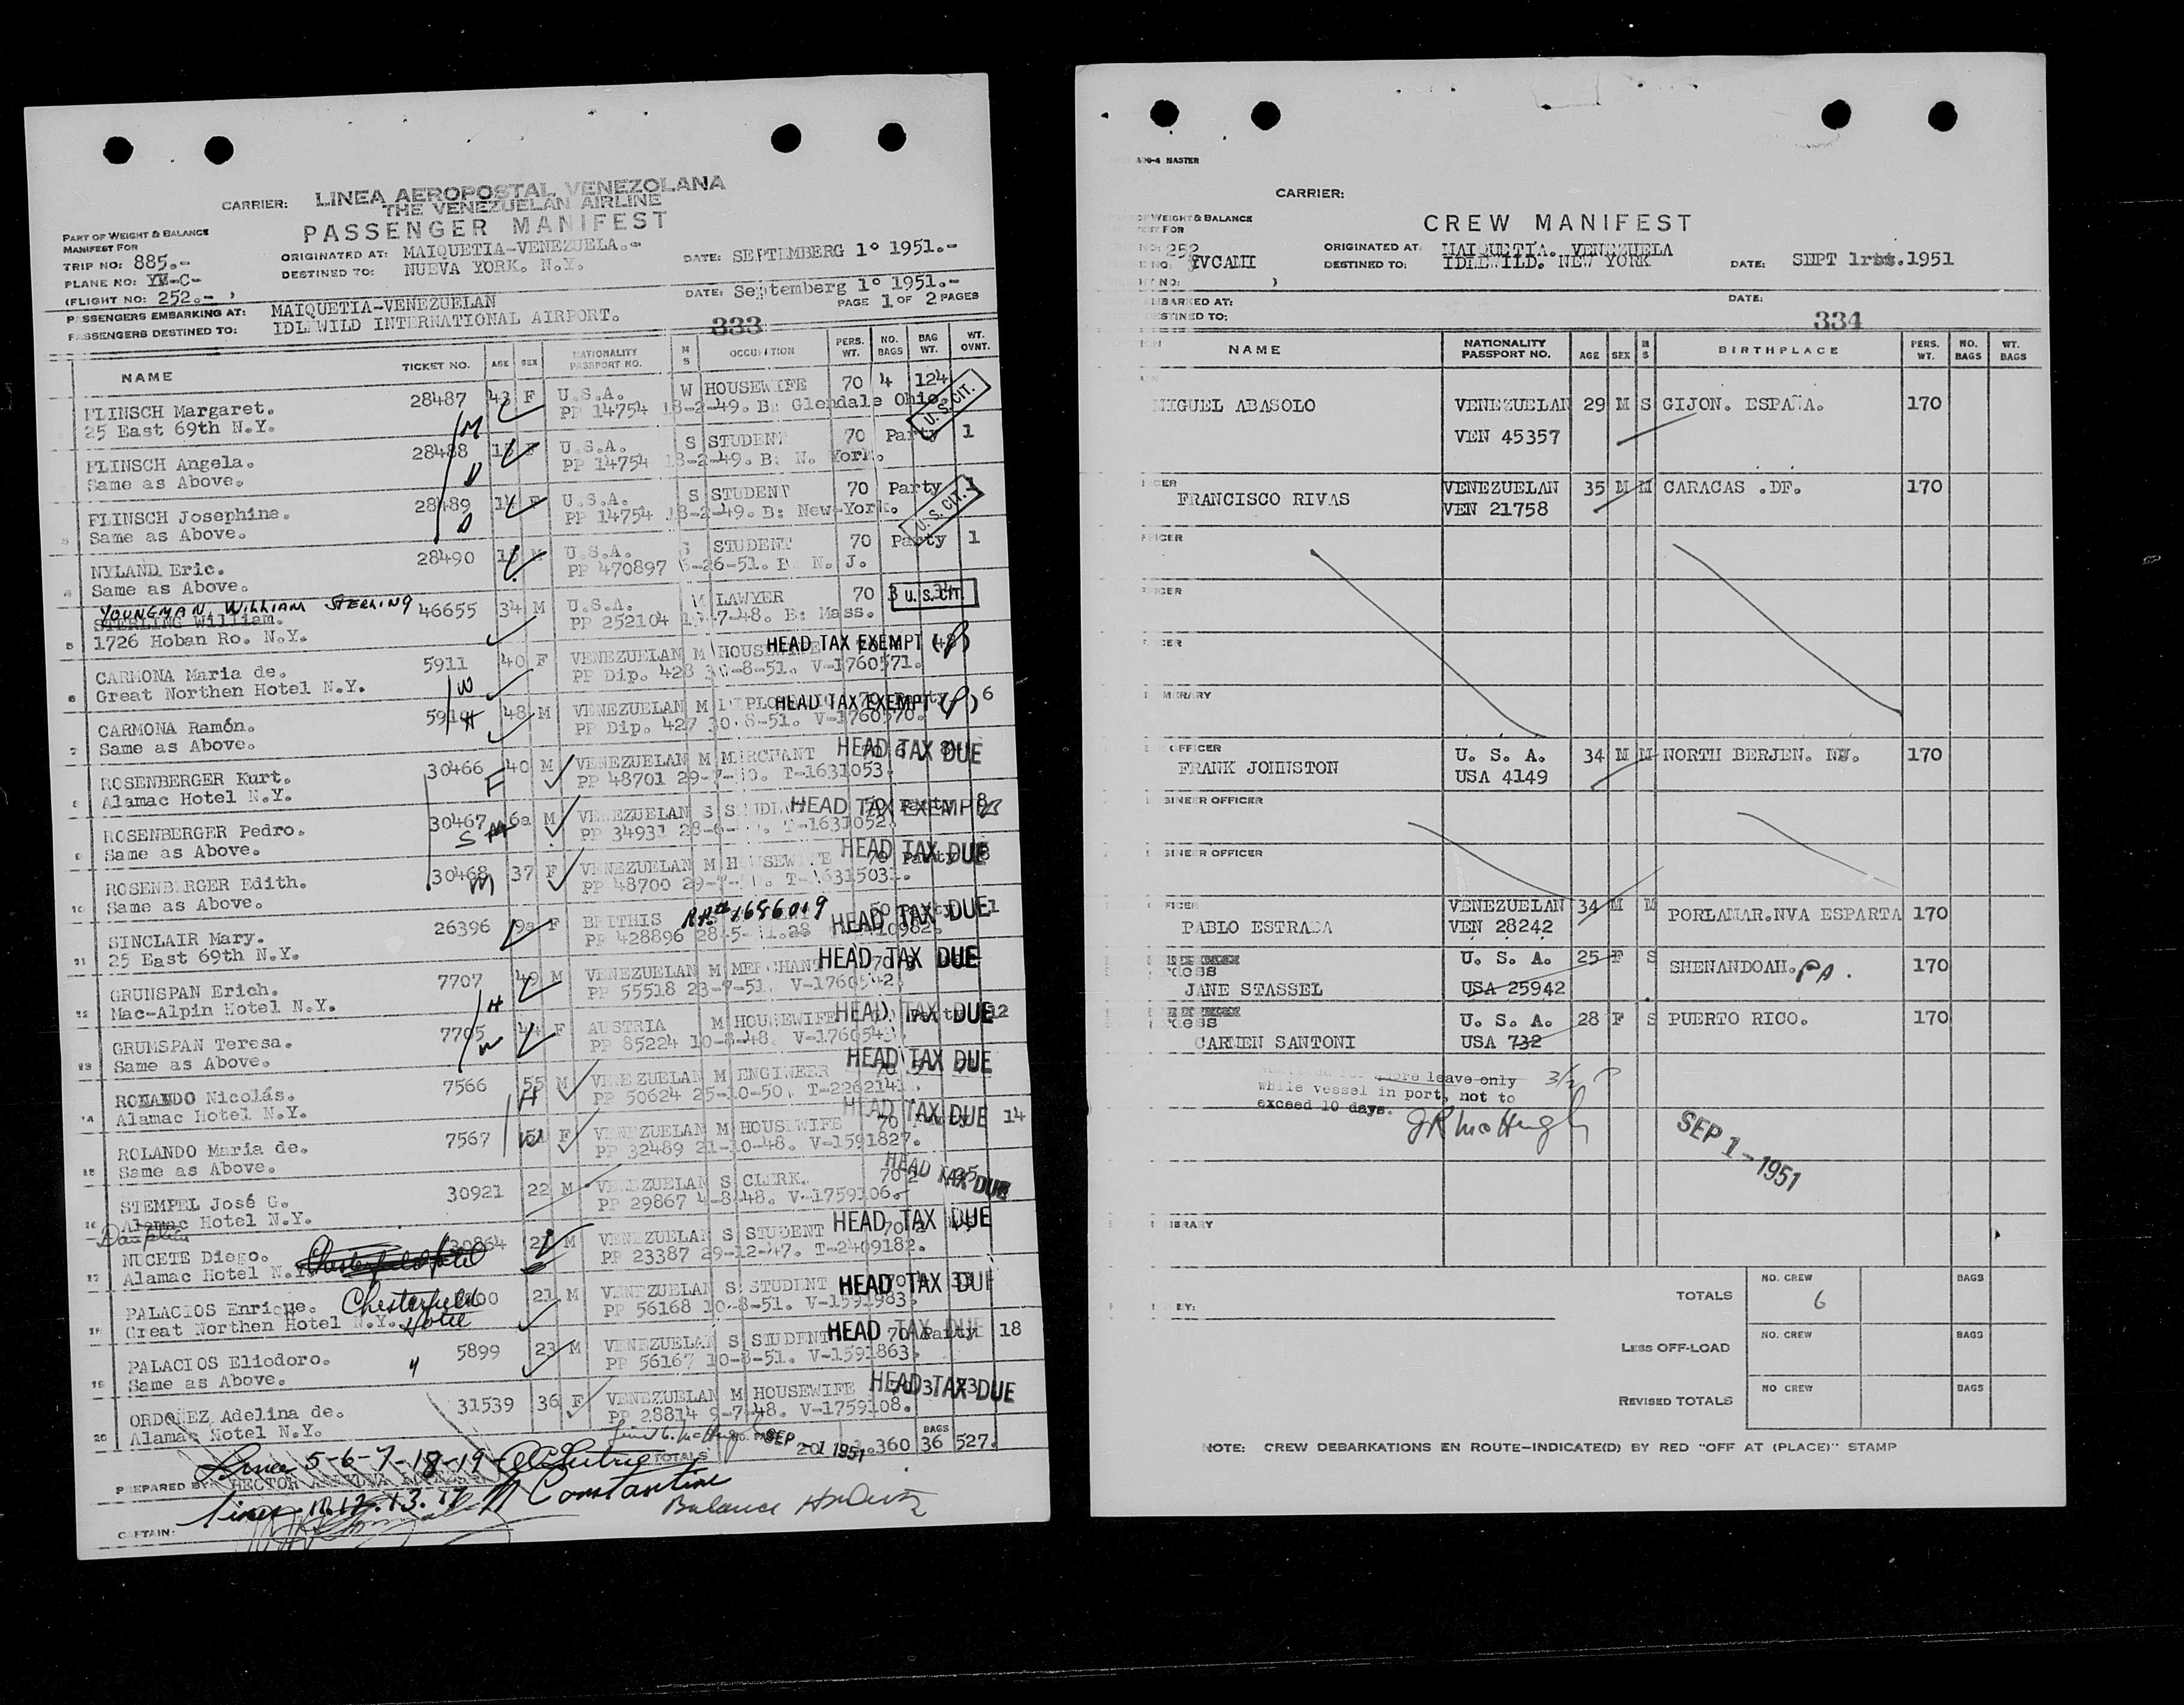 CARRIER: LINEA AEROPOSTAL VENEZOLANA
THE VENEZUELAN AIRLINE
PASSENGER MANIFEST
PART OF WEIGHT & BALANCE
MANIFEST FOR
TRIP NO: 885.-
PLANE NO: YV-C-
(FLIGHT NO: 252.- )
ORIGINATED AT: MAIQUETIA-VENEZUELA.-
DESTINED TO: NUEVA YORK. N.Y.
DATE: SEPTIMBERG 1° 1951.-
DATE: Septemberg 1° 1951.-
PAGE 1 OF 2 PAGES
PASSENGERS EMBARKING AT: MAIQUETIA-VENEZUELAN
PASSENGERS DESTINED TO: IDLEWILD INTERNATIONAL AIRPORT.
333
NAME TICKET NO. AGE SEX NATIONALITY PASSPORT NO. M S OCCUPATION PERS. WT. NO. BAGS BAG WT. WT. OVNT.
FLINSCH Margaret. 28487 43 F U.S.A. W HOUSEWIFE 70 4 124
25 East 69th N.Y. PP 14754 18-2-49. B: Glendale Ohio. U.S.CIT.
FLINSCH Angela. 28488 F U.S.A. S STUDENT 70 Party 1
Same as Above. PP 14754 18-2-49. B: N. York.
FLINSCH Josephine. 28489 14 F U.S.A. S STUDENT 70 Party 1
3 Same as Above. PP 14754 18-2-49. B: New-York. U.S.CIT.
NYLAND Eric. 28490 M U.S.A. S STUDENT 70 Party 1
4 Same as Above. PP 470897 -26-51. B N. J.
YOUNGMAN, WILLIAM STERLING
STERLING William. 46655 34 M U.S.A. M LAWYER 70 3 U.S.CIT.
5 1726 Hoban Ro. N.Y. PP 252104 -7-48. B: Mass.
CARMONA Maria de. 5911 40 F VENEZUELAN M HOUSEWIFE HEAD TAX EXEMPT
6 Great Northen Hotel N.Y. PP Dip. 428 -8-51. V-1760571.
CARMONA Ramón. 48 M VENEZUELAN M HEAD TAX EXEMPT 6
7 Same as Above. PP Dip. 427 30-8-51. V-1760570.
ROSENBERGER Kurt. 30466 40 M VENEZUELAN M MERCHANT HEAD TAX DUE
8 Alamac Hotel N.Y. PP 48701 29-7- . T-1631053.
ROSENBERGER Pedro. 30467 6a M VENEZUELAN S HEAD TAX EXEMPT 8
9 Same as Above. PP 34931 28-6- . T-1631052.
ROSENBERGER Edith. 30468 37 F VENEZUELAN M HOUSEWIFE HEAD TAX DUE 8
10 Same as Above. PP 48700 29-7- . T-16315031.
SINCLAIR Mary. 26396 9a F BRITHIS 1686019 HEAD TAX DUE
11 25 East 69th N.Y. PP 428896
GRUNSPAN Erich. 7707 49 M VENEZUELAN M MERCHANT HEAD TAX DUE
12 Mac-Alpin Hotel N.Y. PP 55518 23-7-51. V-1760542.
GRUMSPAN Teresa. 7705 44 F AUSTRIA M HOUSEWIFE HEAD TAX DUE 12
13 Same as Above. PP 85224 10-8-48. V-1760543.
ROLANDO Nicolás. 7566 55 M VENEZUELAN M ENGINEER HEAD TAX DUE
14 Alamac Hotel N.Y. PP 50624 25-10-50. T-2262141.
ROLANDO Maria de. 7567 51 F VENEZUELAN M HOUSEWIFE 70 HEAD TAX DUE 14
15 Same as Above. PP 32489 21-10-48. V-1591827.
STEMPEL José G. 30921 22 M VENEZUELAN S CLERK. 70 2 HEAD TAX DUE
16 Alamac Hotel N.Y. PP 29867 4-8-48. V-1759106.
Dauphin
NUCETE Diego. 30864 M VENEZUELAN S STUDENT 70 HEAD TAX DUE
17 Alamac Hotel N.Y. PP 23387 29-12-47. T-2409182.
PALACIOS Enrique. Chesterfield Hotel 21 M VENEZUELAN S STUDENT HEAD TAX DUE
18 Great Northen Hotel N.Y. PP 56168 10-8-51. V-1591983.
PALACIOS Eliodoro. 5899 23 M VENEZUELAN S STUDENT 70 Party HEAD TAX DUE 18
19 Same as Above. PP 56167 10-8-51. V-1591863.
ORDOÑEZ Adelina de. 31539 36 F VENEZUELAN M HOUSEWIFE HEAD TAX DUE
20 Alamac Hotel N.Y. PP 28814 9-7-48. V-1759108.
TOTALS SEP 1 1951 20 1.360 BAGS 36 527.
Lines 5-6-7-18-19
PREPARED BY: HECTOR
Lines 11.12.13.17 Constantine
Balance
CAPTAIN:
CARRIER:
CREW MANIFEST
WEIGHT & BALANCE
252
YVCAMI
ORIGINATED AT: MAIQUETIA. VENEZUELA
DESTINED TO: IDLEWILD. NEW YORK
DATE: SEPT 1rst.1951
EMBARKED AT:
DESTINED TO:
DATE:
334
NAME NATIONALITY PASSPORT NO. AGE SEX M S BIRTHPLACE PERS. WT. NO. BAGS WT. BAGS
MIGUEL ABASOLO VENEZUELAN 29 M S GIJON. ESPAÑA. 170
VEN 45357
FRANCISCO RIVAS VENEZUELAN 35 M M CARACAS .DF. 170
VEN 21758
OFFICER
FRANK JOHNSTON U. S. A. 34 M M NORTH BERJEN. NJ. 170
USA 4149
ENGINEER OFFICER
ENGINEER OFFICER
PABLO ESTRADA VENEZUELAN 34 M M PORLAMAR.NVA ESPARTA 170
VEN 28242
JANE STASSEL U. S. A. 25 F S SHENANDOAH. PA. 170
USA 25942
CARMEN SANTONI U. S. A. 28 F S PUERTO RICO. 170
USA 732
shore leave only
while vessel in port, not to
exceed 10 days.
J R McHugh
SEP 1-1951
TOTALS NO. CREW 6 BAGS
LESS OFF-LOAD NO. CREW BAGS
REVISED TOTALS NO CREW BAGS
NOTE: CREW DEBARKATIONS EN ROUTE-INDICATE(D) BY RED "OFF AT (PLACE)" STAMP